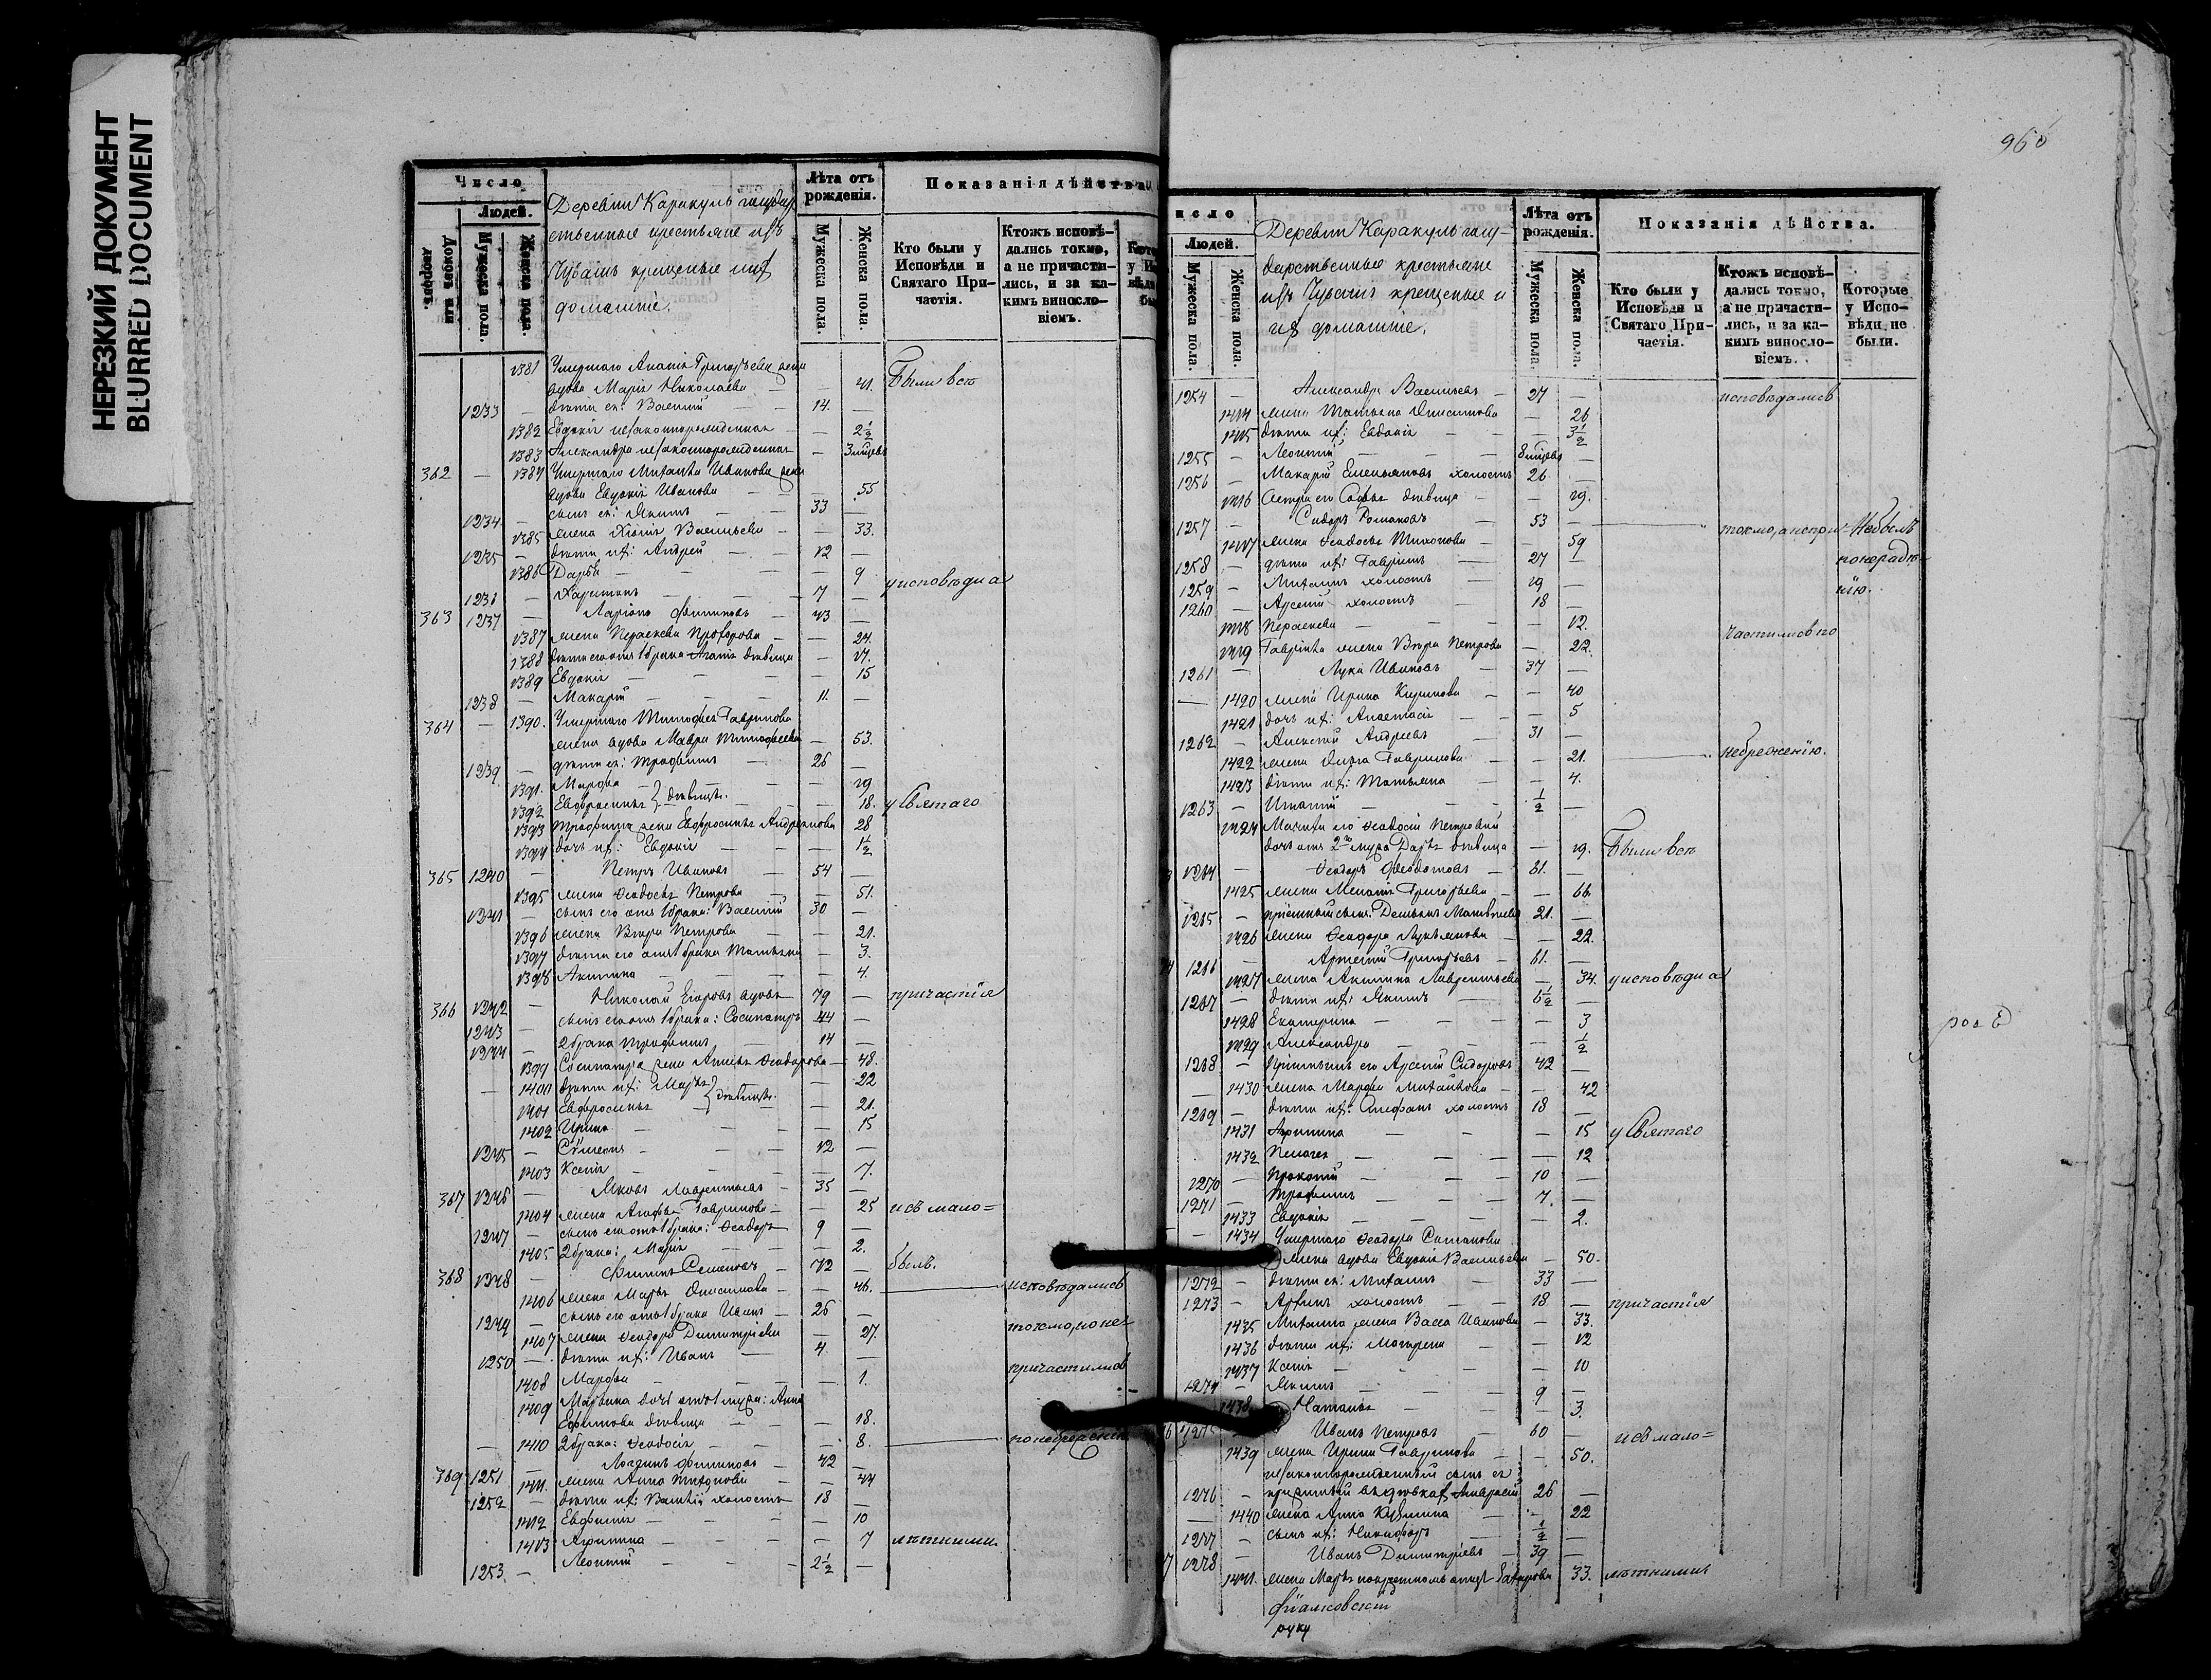 НЕРЕЗКИЙ ДОКУМЕНТ
BLURRED DOCUMENT
Число
Людей.
Домовъ или дворовъ.
Мужеска пола.
Женска пола.
Деревни Каракуль государ
ственные крестьяне изъ
Чувашъ крещеные и ихъ
домашніе.
Лѣта отъ рожденія.
Мужеска пола.
Женска пола.
Показанія дѣйства.
Кто были у Исповѣди и Святаго Причастія.
Ктожъ исповѣдались токмо, а не причастились, и за какимъ винословіемъ.
1381 Умершаго Григорьева жена
вдова Марія Николаева — 41. Были всѣ
1233 — дѣти ея: Василій — 14. —
1382 Евдокія незаконнорожденная — 2½
1383 Александра незаконнорожденная —
362 — 1384 Умершаго Михаила Иванова жена
вдова Евдокія Иванова — 55
1234 — сынъ ея: Якимъ — 33 —
1385 жена Васильева — 33.
1235 — дѣти ихъ: Андрей — 12 —
1386 Дарья — 9
1236 — Харитонъ — 7 — у исповѣди и
363 1237 — Ларіонъ Филиповъ — 43 —
1387 жена Параскева Прохорова — 24.
1388 дѣти его отъ 1 брака Агапія дѣвица — 17.
1389 Евдокія — 15
1238 — Макарій — 11. —
364 — 1390. Умершаго Тимофея Гаврилова
жена вдова Мавра Тимофеева — 53.
1239 — дѣти ея: Трофимъ — 26 —
1391. Марфа — 19
1392 Евфросинья } дѣвицы. — 18. у Святаго
1393 Трофима жена Евфросинья Андреянова 28
1394 дочь ихъ: Евдокія — 1½
365 1240 — Петръ Ивановъ — 54 —
1395 жена Ѳеодосья Петрова — 51.
1241 — сынъ его отъ 1 брака: Василій 30 —
1396 жена Вѣра Петрова — 21.
1397 дѣти его отъ 1 брака Татьяна — 3.
1398 Акилина — 4.
366 1242 — Николай Егоровъ вдовъ 79 — причастія
1243 — сынъ его отъ 1 брака: Сосипатръ 44 —
1244 — 2 брака Трофимъ — 14 —
1399 Сосипатра жена Ѳеодорова — 48.
1400 дѣти ихъ: Марья — 22
1401 Евфросинья } дѣвицы. — 21.
1402 Ирина — 15
1245 — Симеонъ — 12 —
1403 Ксенія — 7.
367 1246 — Яковъ Лаврентьевъ — 35 —
1404 жена Агафья Гаврилова — 25 и съ мало=
1247 — сынъ его отъ 1 брака: Ѳеодоръ 9 —
1405 2 брака: Марія — 2.
368 1248 — Филипъ Семеновъ — 72 — былъ.
1406 жена Марья Онисимова — 46. исповѣдались
1249 — сынъ его отъ 1 брака Иванъ — 26 —
1407 жена Ѳеодора Димитріева — 27. токмо, но не
1250 — дѣти ихъ: Иванъ — 4. —
1408 Марфа — 1. причастились
1409 Марьина дочь отъ 1 мужа: Анна
Ефимова дѣвица — 18.
— 1410 2 брака: Ѳеодосія — 8.
369 1251 — Логинъ Филиповъ — 42 —
1411. жена Анна — 44
1252 — дѣти ихъ: холостъ 18 —
1412 — 10
1413 Акилина — 7 лѣтними
1253. — Леонтій — 2½ —
960
Число
Людей.
Мужеска пола.
Женска пола.
Деревни Каракуль госу-
дарственные крестьяне
изъ Чувашъ крещеные и
ихъ домашніе.
Лѣта отъ рожденія.
Мужеска пола
Женска пола.
Показанія дѣйства.
Кто были у Исповѣди и Святаго Причастія.
Ктожъ исповѣдались токмо, а не причастились, и за какимъ винословіемъ.
Которые у Исповѣди не были.
1254 — Александръ Васильевъ — 27 — исповѣдались
1414 жена Татьяна Онисимова — 26
1415 дѣти ихъ: Евдокія — 3½
1255 — Леонтій —
1256 — Макарій Емельяновъ холостъ 26 —
1416 сестра его Софья дѣвица — 19.
1257 — Сидоръ Романовъ — 53 — токмо, а не при- Не былъ
1417 жена Ѳеодосья Тихонова — 59
1258 — дѣти ихъ: Гаврилъ — 27 — по нерадѣ-
1259 — Михаилъ холостъ — 19 — нію.
1260 — Арсеній холостъ — 18 —
1418 Параскева — 12. частились по
1419 Гаврила жена Вѣра Петрова — 22.
1261 — Лука Ивановъ — 37 —
— 1420 жена Ирина Кирилова — 40
1421 дочь ихъ: Анастасія — 5
1262 — Алексѣй Андреевъ — 31 —
1422 жена Ольга Гаврилова — 21. небреженію.
1423 дѣти ихъ: Татьяна — 4.
1263 — Игнатій — ½ —
1424 Мачихи его Ѳеодосіи Петровой
дочь отъ 2го мужа Дарья дѣвица — 19. Были всѣ
1264 — Ѳеодоръ Ѳеодотовъ — 61. —
1425 жена Григорьева — 66.
1265 — пріемный сынъ: Демьянъ Матвѣевъ 21. —
1426 жена Ѳеодора Лукьянова — 22.
1266 — Артемій Григорьевъ — 61. —
1427 жена Акилина Лаврентьева — 34. у исповѣди и
1267 — дѣти ихъ: Якимъ — 6½ —
1428 Екатерина — 3
1429 Александра — ½
1268 — его Арсеній Сидоровъ 42 —
— 1430 жена Марфа Михайлова — 42
1269 — дѣти ихъ: Стефанъ холостъ 18 —
1431 Акилина — 15 у Святаго
1432 Пелагея — 12
1270 — Прокопій — 10 —
1271 — Трофимъ — 7. —
1433 Евдокія — 2.
— 1434 Умершаго Ѳеодора
жена вдова Евдокія Васильева — 50.
1272 — дѣти ея: Михаилъ — 33 —
1273 — холостъ — 18 — причастія
1435 Михаила жена Васса Иванова — 33.
1436 дѣти ихъ: — 12
1437 Ксенія — 10
1274 — Якимъ — 9 —
1438 Наталья — 3.
1275 Иванъ Петровъ — 60 — и съ мало=
1439 жена Ирина Гаврилова — 50.
незаконнорожденный сынъ ея
1276 — 26 —
— 1440 жена Анна Кузмина — 22
1277 — сынъ ихъ: Никифоръ — ½ —
1278 — Иванъ Димитріевъ — 39 —
1441. жена Марья 33. лѣтними
руку